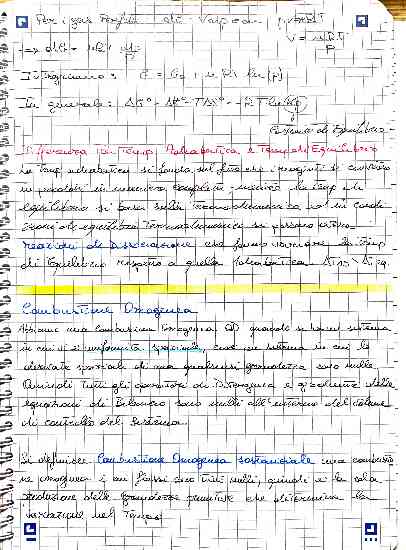 Per i gas perfetti di Vapori pV=nRT
=> dG = nRT dp/p V = nRT/p
Integriamo: G = G0 + nRT ln(p)
In generale: ΔG° = ΔH° - TΔS° = -RT ln(Kp)
Costante di Equilibrio
Differenza tra Temp. Adiabatica e Temp di Equilibrio
La Temp adiabatica si fonda sul fatto che i reagenti si convertono
in prodotti in maniera completa mentre la temp di
equilibrio si basa sulla termodinamica
di equilibrio termodinamico si possono
reazioni di Dissociazione che fanno variare la Temp
di Equilibrio rispetto a quella Adiabatica.
Combustione Omogenea
Abbiamo una combustione Omogenea quando si ha un sistema
in cui vi è uniformità spaziale, cioè un sistema in cui le
derivate spaziali di una qualsiasi grandezza sono nulle.
Quindi tutti gli operatori di Divergenza e gradiente delle
equazioni di Bilancio sono nulli all'interno del volume
di controllo del sistema.
Si definisce Combustione Omogenea sostanziale una combustio
ne omogenea i cui flussi sono tutti nulli, quindi è la sola
produzione delle grandezze che determina la
variazione nel Tempo